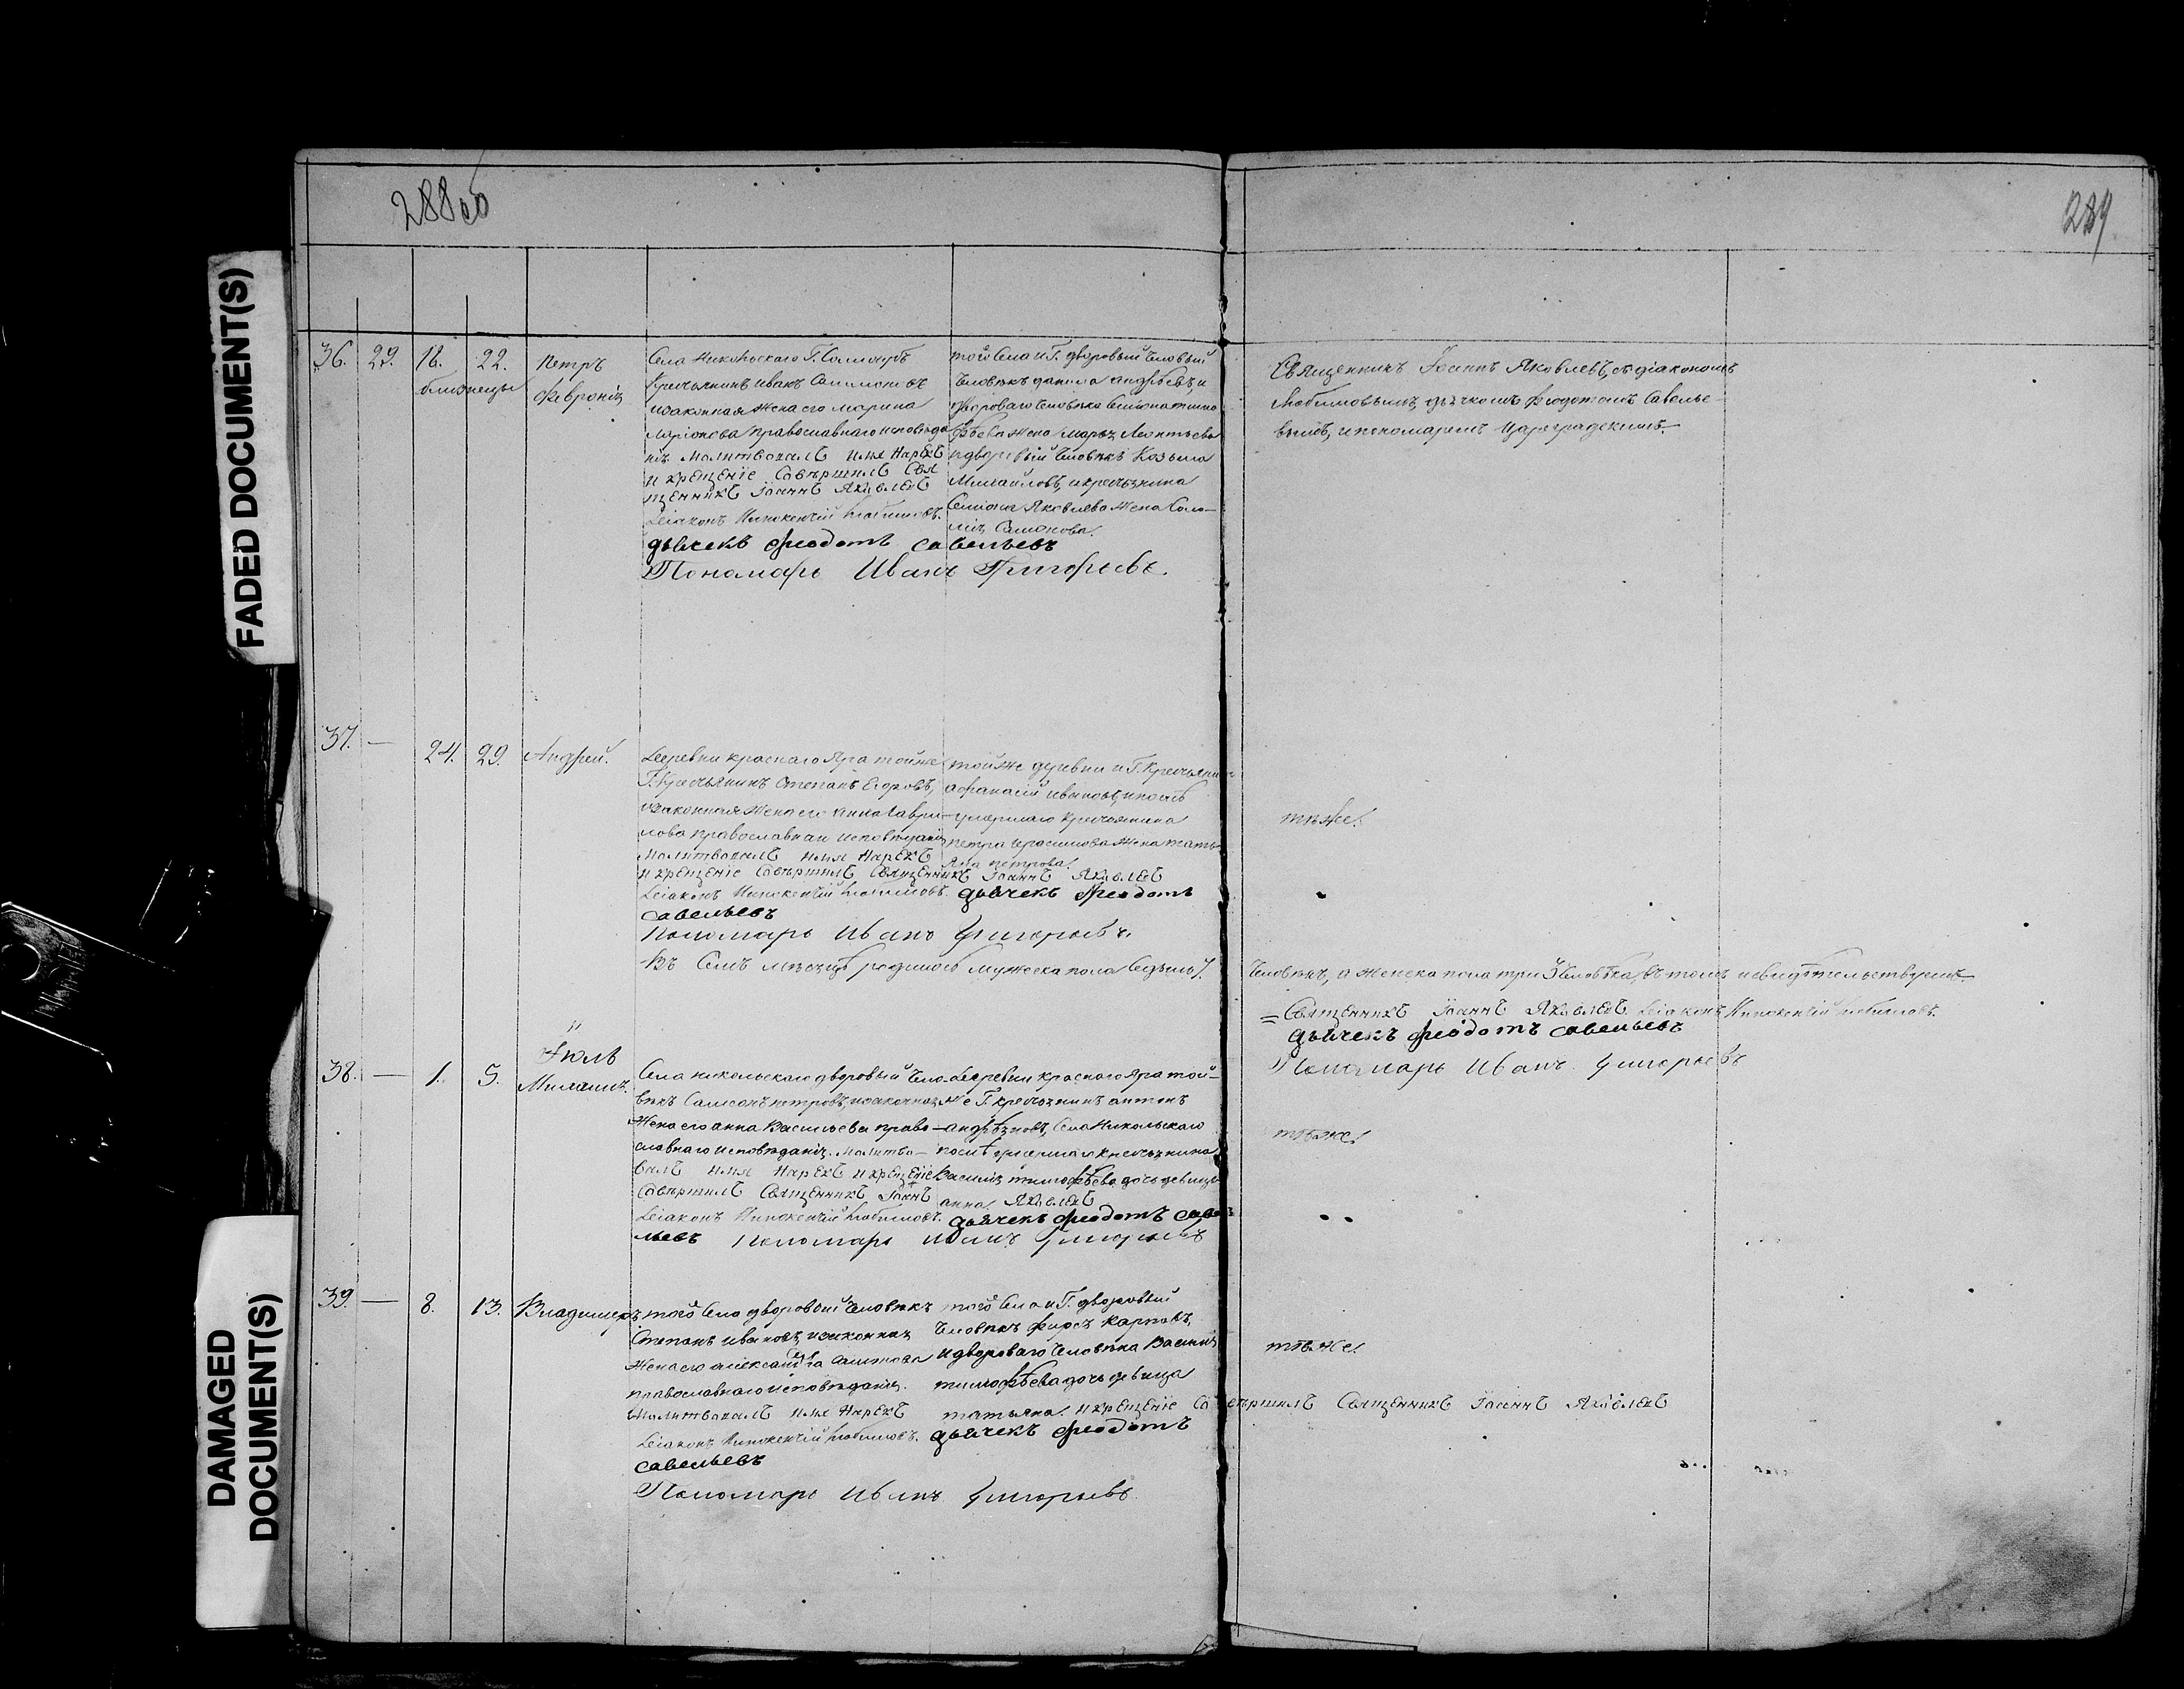 288 об
289
FADED DOCUMENT(S)
DAMAGED
DOCUMENT(S)
36. 29. 18. 22. Петръ
близнецы Февронія
Села Никольскаго Г.
Кресьянинъ иванъ
изаконная жена его марина
православнаго исповѣда
нія. Молитвовалъ имя Нарекъ
и крещеніе Совершилъ Свя
щенникъ Іоаннъ Яковлевъ
Діаконъ Инокентій Любимовъ.
дьячекъ Феодотъ савельевъ
Пономарь Иванъ Григорьевъ.
того Села и Г. дворовый
Человѣкъ данила андрѣевъ, и
двороваго Человѣка
жена марья Леонтьева
идворовый Человѣкъ Козьма
Михайловъ, икресьянина
Яковлева Жена
Священникъ Іоаннъ Яковлевъ, съ діакономъ
Любимовымъ, дьячкомъ Феодотомъ Савелье-
вымъ, ипономаремъ Цареградскимъ.
37. — 24. 29. Андрей.
Деревни краснаго Яра тойже
Г. Кресьянинъ Степанъ Егоровъ,
изаконная Жена его анна Гаври-
лова православнаи исповѣданія
Молитвовалъ имя Нарекъ
и крещеніе Совершилъ Священникъ Іоаннъ Яковлевъ
Діаконъ Инокентій Любимовъ. дьячекъ Феодотъ
савельевъ
Пономарь Иванъ Григорьевъ.
тойже деревни и Г. Кресьянин
афанасій ивановъ,
умершаго кресьянина
петра Жена татья
яна петрова.
тѣже.
Въ Семъ мѣсяцѣ родилось мужеска пола Седьмь 7.
Человѣкъ, а женска пола три 3 Человѣка, въ томъ исвидѣтельствуемъ
= Священникъ Іоаннъ Яковлевъ Діаконъ Инокентій Любимовъ.
дьячекъ феодотъ савельевъ
Пономарь Иванъ Григорьевъ
Іюль
38. — 1. 5.
Села никольскаго дворовый Чело-
вѣкъ Самсонъ петровъ, изаконная
Жена его анна Васильева право-
славнаго исповѣданія. Молитво-
валъ имя Нарекъ и крещеніе
Совершилъ Священникъ Іоаннъ Яковлевъ
Діаконъ Инокентій Любимовъ. дьячекъ феодотъ саве
льевъ Пономарь Иванъ Григорьевъ
Деревни краснаго Яра той-
же Г. кресьянинъ антонъ
Села Никольскаго
Василія тимофѣева дочь девица
анна
тѣже.
39. — 8. 13. Владимеръ
того Села дворовый Человѣкъ
Степанъ ивановъ, изаконная
Жена его александра
православнаго исповѣданія.
Молитвовалъ имя Нарекъ
и крещеніе Совершилъ Священникъ Іоаннъ Яковлевъ
Діаконъ Инокентій Любимовъ. дьячекъ феодотъ
савельевъ
Пономарь Иванъ Григорьевъ
того Села и Г. дворовый
Человѣкъ фирсъ карповъ,
идвороваго Человѣка Василія
тимофѣева дочь девица
татьяна.
тѣже.